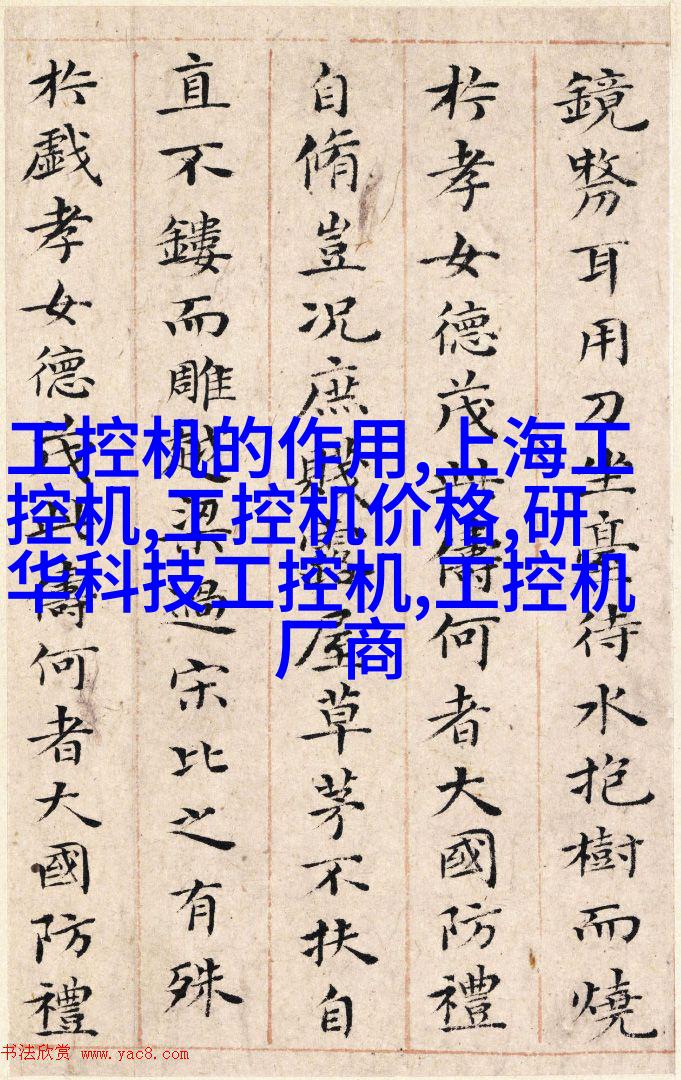 鏡剺耳用刀坐臺待水抱樹而燒
於孝女德茂此儔何者大國防禮
自脩豈況庶賤露屋草茅不扶自
直不鏤而雕越梁過宋比之有殊
於戲孝女德茂此儔何者大國防禮
工控机的作用,上海工
控机,工控机价格,研
华科技工控机,工控机
厂商
书法欣赏 www.yac8.com